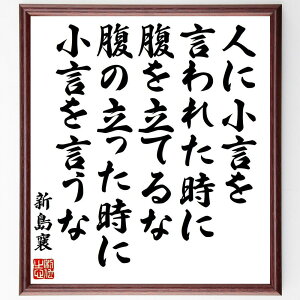 人に小言を
言われた時に
腹を立てるな
腹の立った時に
小言を言うな
新島襄